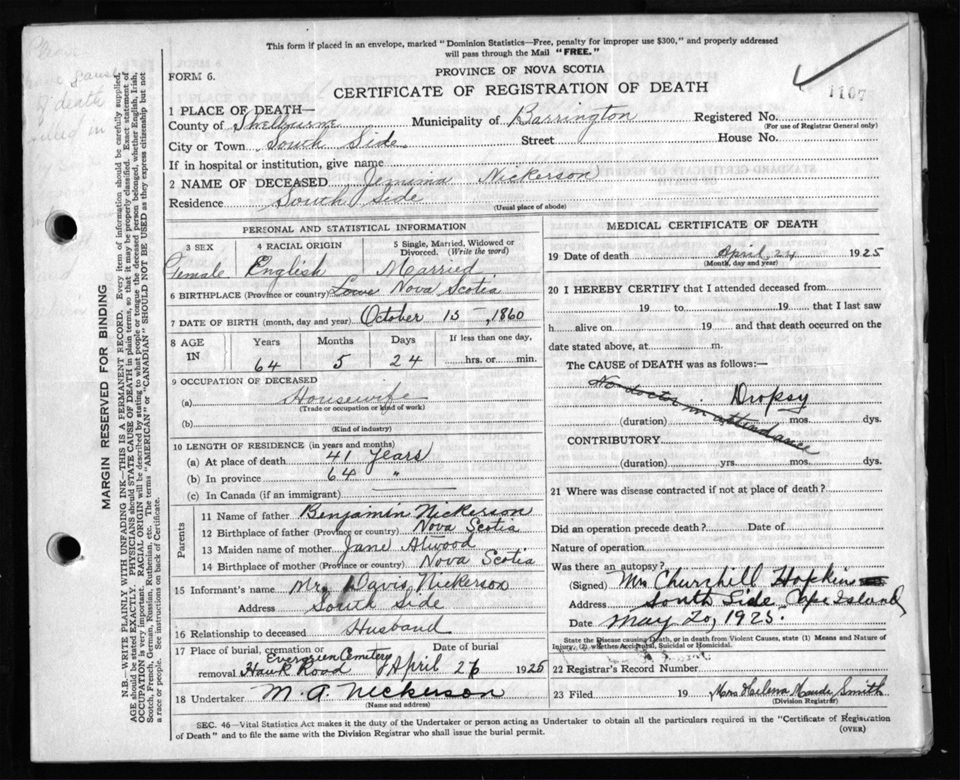 This form if placed in an envelope, marked "Dominion Statistics—Free, penalty for improper use $300," and properly addressed
will pass through the Mail "FREE."
PROVINCE OF NOVA SCOTIA
FORM 6.
CERTIFICATE OF REGISTRATION OF DEATH
1107
1 PLACE OF DEATH—
County of Shelburne Municipality of Barrington Registered No.
(For use of Registrar General only)
City or Town South Side Street House No.
If in hospital or institution, give name
2 NAME OF DECEASED Jemima Nickerson
Residence South Side
(Usual place of abode)
PERSONAL AND STATISTICAL INFORMATION
3 SEX 4 RACIAL ORIGIN 5 Single, Married, Widowed or
Divorced. (Write the word)
Female English Married
6 BIRTHPLACE (Province or country) Nova Scotia
7 DATE OF BIRTH (month, day and year) October 15, 1860
8 AGE IN Years Months Days If less than one day,
64 5 24 hrs. or min.
9 OCCUPATION OF DECEASED
(a) Housewife
(Trade or occupation or kind of work)
(b)
(Kind of industry)
10 LENGTH OF RESIDENCE (in years and months)
(a) At place of death 41 years
(b) In province 64 "
(c) In Canada (if an immigrant)
Parents
11 Name of father Benjamin Nickerson
12 Birthplace of father (Province or country) Nova Scotia
13 Maiden name of mother Jane Atwood
14 Birthplace of mother (Province or country) Nova Scotia
15 Informant's name Mr. Davis Nickerson
Address South Side
16 Relationship to deceased Husband
17 Place of burial, cremation or Date of burial
removal Evergreen Cemetery
Hawk Road April 26 1925
18 Undertaker M. A. Nickerson
(Name and address)
MEDICAL CERTIFICATE OF DEATH
19 Date of death April 24 1925
(Month, day and year)
20 I HEREBY CERTIFY that I attended deceased from
19 to 19 that I last saw
h alive on 19 and that death occurred on the
date stated above, at m.
The CAUSE OF DEATH was as follows:—
No doctor in attendance
Dropsy
(duration) mos. dys.
CONTRIBUTORY
(duration) yrs. mos. dys.
21 Where was disease contracted if not at place of death?
Did an operation precede death? Date of
Nature of operation
Was there an autopsy?
(Signed) Mrs Churchill Hopkins
Address South Side Cape Island
Date May 20, 1925.
State the Disease causing Death, or in death from Violent Causes, state (1) Means and Nature of
Injury, (2) whether Accidental, Suicidal or Homicidal.
22 Registrar's Record Number
23 Filed 19 Mrs Helena Maude Smith
(Division Registrar)
SEC. 46—Vital Statistics Act makes it the duty of the Undertaker or person acting as Undertaker to obtain all the particulars required in the "Certificate of Registration
of Death" and to file the same with the Division Registrar who shall issue the burial permit.
(OVER)
MARGIN RESERVED FOR BINDING
N.B.—WRITE PLAINLY WITH UNFADING INK—THIS IS A PERMANENT RECORD. Every item of information should be carefully supplied.
AGE should be stated EXACTLY. PHYSICIANS should STATE CAUSE OF DEATH in plain terms, so that it may be properly classified. Exact statement of
OCCUPATION is very important. RACIAL ORIGIN will be described by stating to what people or tongue the deceased person belonged, whether English, Irish,
Scotch, French, German, Russian, Ruthenian, etc. The terms "AMERICAN" or "CANADIAN" SHOULD NOT BE USED as they express citizenship but not
a race or people. See instructions on back of Certificate.